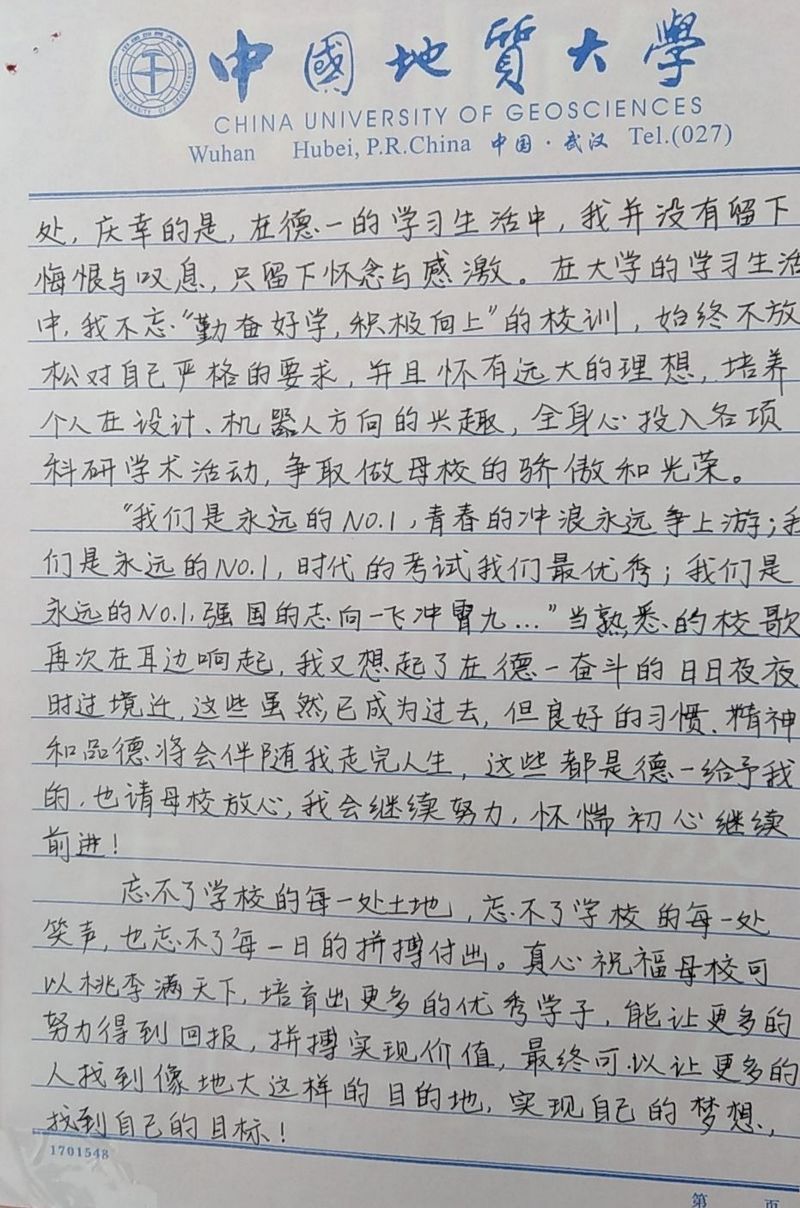 中國地質大學
CHINA UNIVERSITY OF GEOSCIENCES
Wuhan Hubei, P.R.China 中国·武汉 Tel.(027)
处，庆幸的是，在德一的学习生活中，我并没有留下
悔恨与叹息，只留下怀念与感激。在大学的学习生活
中，我不忘“勤奋好学，积极向上”的校训，始终不放
松对自己严格的要求，并且怀有远大的理想，培养
个人在设计、机器人方向的兴趣，全身心投入各项
科研学术活动，争取做母校的骄傲和光荣。
“我们是永远的NO.1，青春的冲浪永远争上游；我
们是永远的NO.1，时代的考试我们最优秀；我们是
永远的NO.1，强国的志向一飞冲霄九...”当熟悉的校歌
再次在耳边响起，我又想起了在德一奋斗的日日夜夜
时过境迁，这些虽然已成为过去，但良好的习惯、精神
和品德将会伴随我走完人生，这些都是德一给予我
的，也请母校放心，我会继续努力，怀惴初心继续
前进！
忘不了学校的每一处土地，忘不了学校的每一处
笑声，也忘不了每一日的拼搏付出。真心祝福母校可
以桃李满天下，培育出更多的优秀学子，能让更多的
努力得到回报，拼搏实现价值，最终可以让更多的
人找到像地大这样的目的地，实现自己的梦想，
找到自己的目标！
1701548
第 页